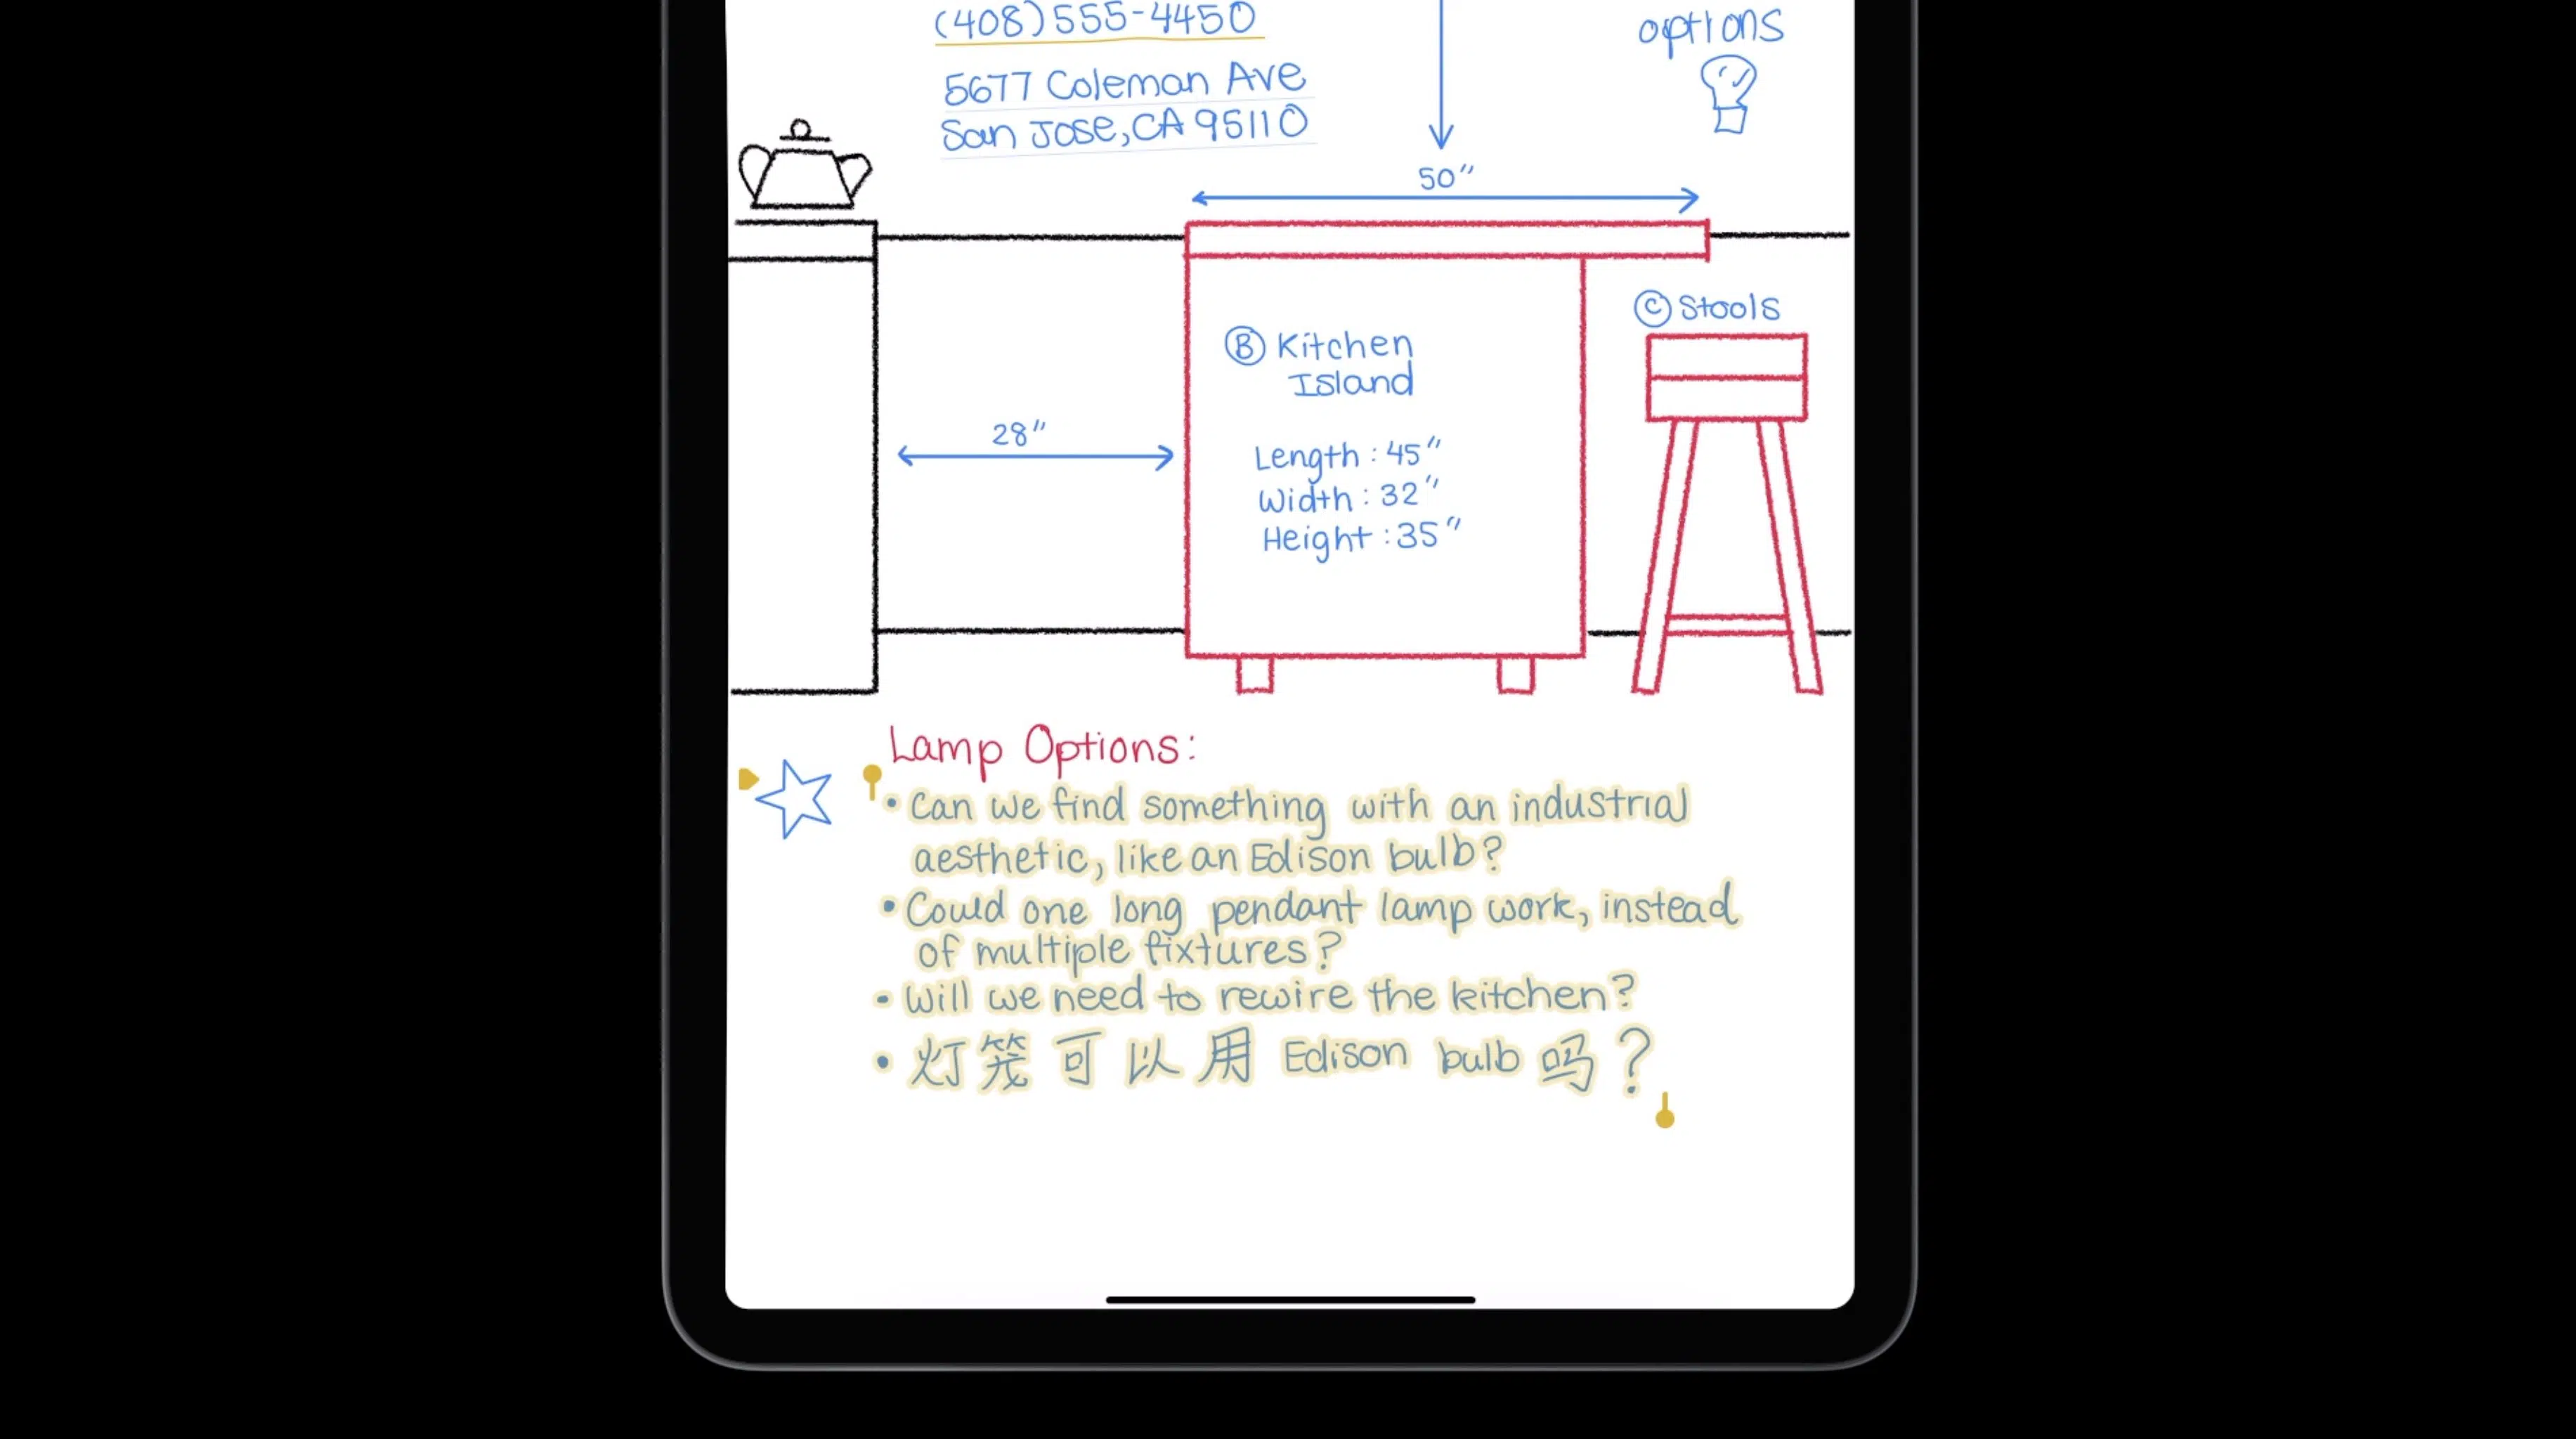 (408)555-4450
5677 Coleman Ave
San Jose, CA 95110
options
50"
Ⓒ Stools
Ⓑ Kitchen
Island
28"
Length: 45"
Width: 32"
Height: 35"
Lamp Options:
• Can we find something with an industrial
aesthetic, like an Edison bulb?
• Could one long pendant lamp work, instead
of multiple fixtures?
• Will we need to rewire the kitchen?
• 灯笼可以用 Edison bulb 吗?